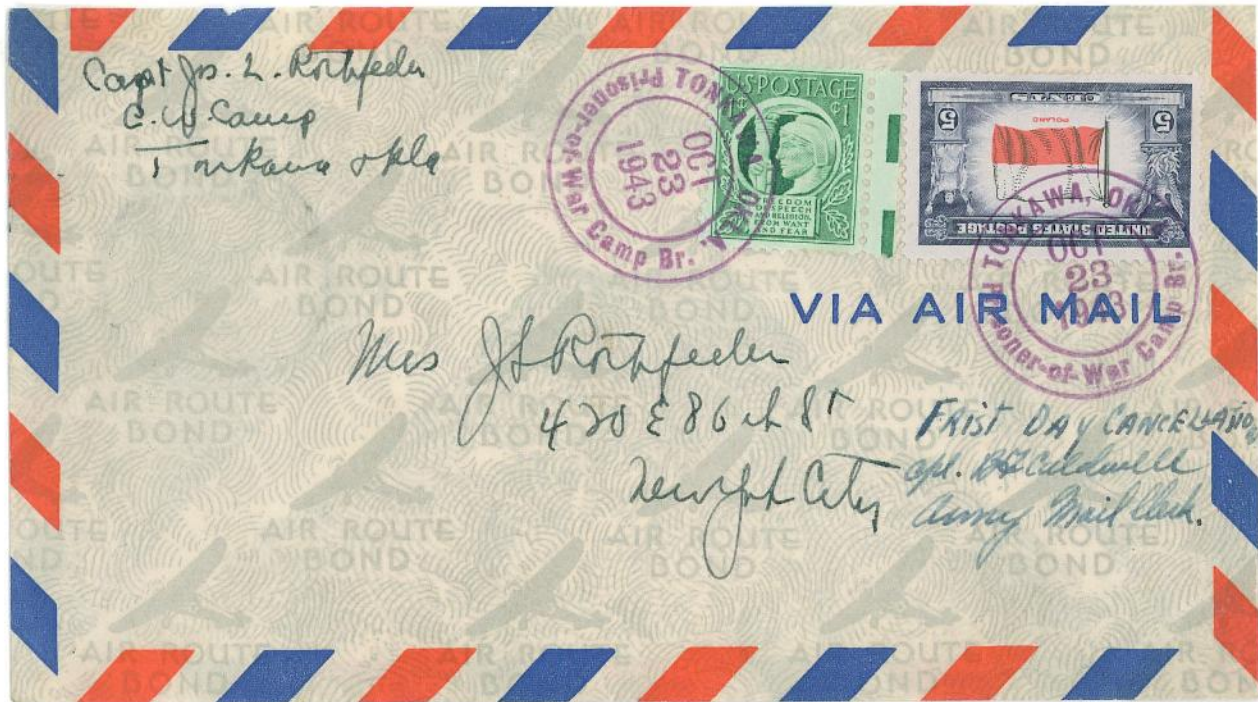 Capt Jos. L. Rothfeder
C. W. Camp
Tonkawa Okla
TONKAWA, OKLA.
OCT
23
1943
Prisoner-of-War Camp Br.
U.S. POSTAGE
1¢ ¢1
FREEDOM
OF SPEECH
AND RELIGION,
FROM WANT
AND FEAR
5 CENTS 5
POLAND
UNITED STATES POSTAGE
TONKAWA, OKLA.
OCT
23
1943
Prisoner-of-War Camp Br.
VIA AIR MAIL
Mrs J L Rothfeder
420 E 86th St
New York City
FRIST DAY CANCELLATION
cpl. Caldwell
Army Mail Clerk.
AIR ROUTE
BOND